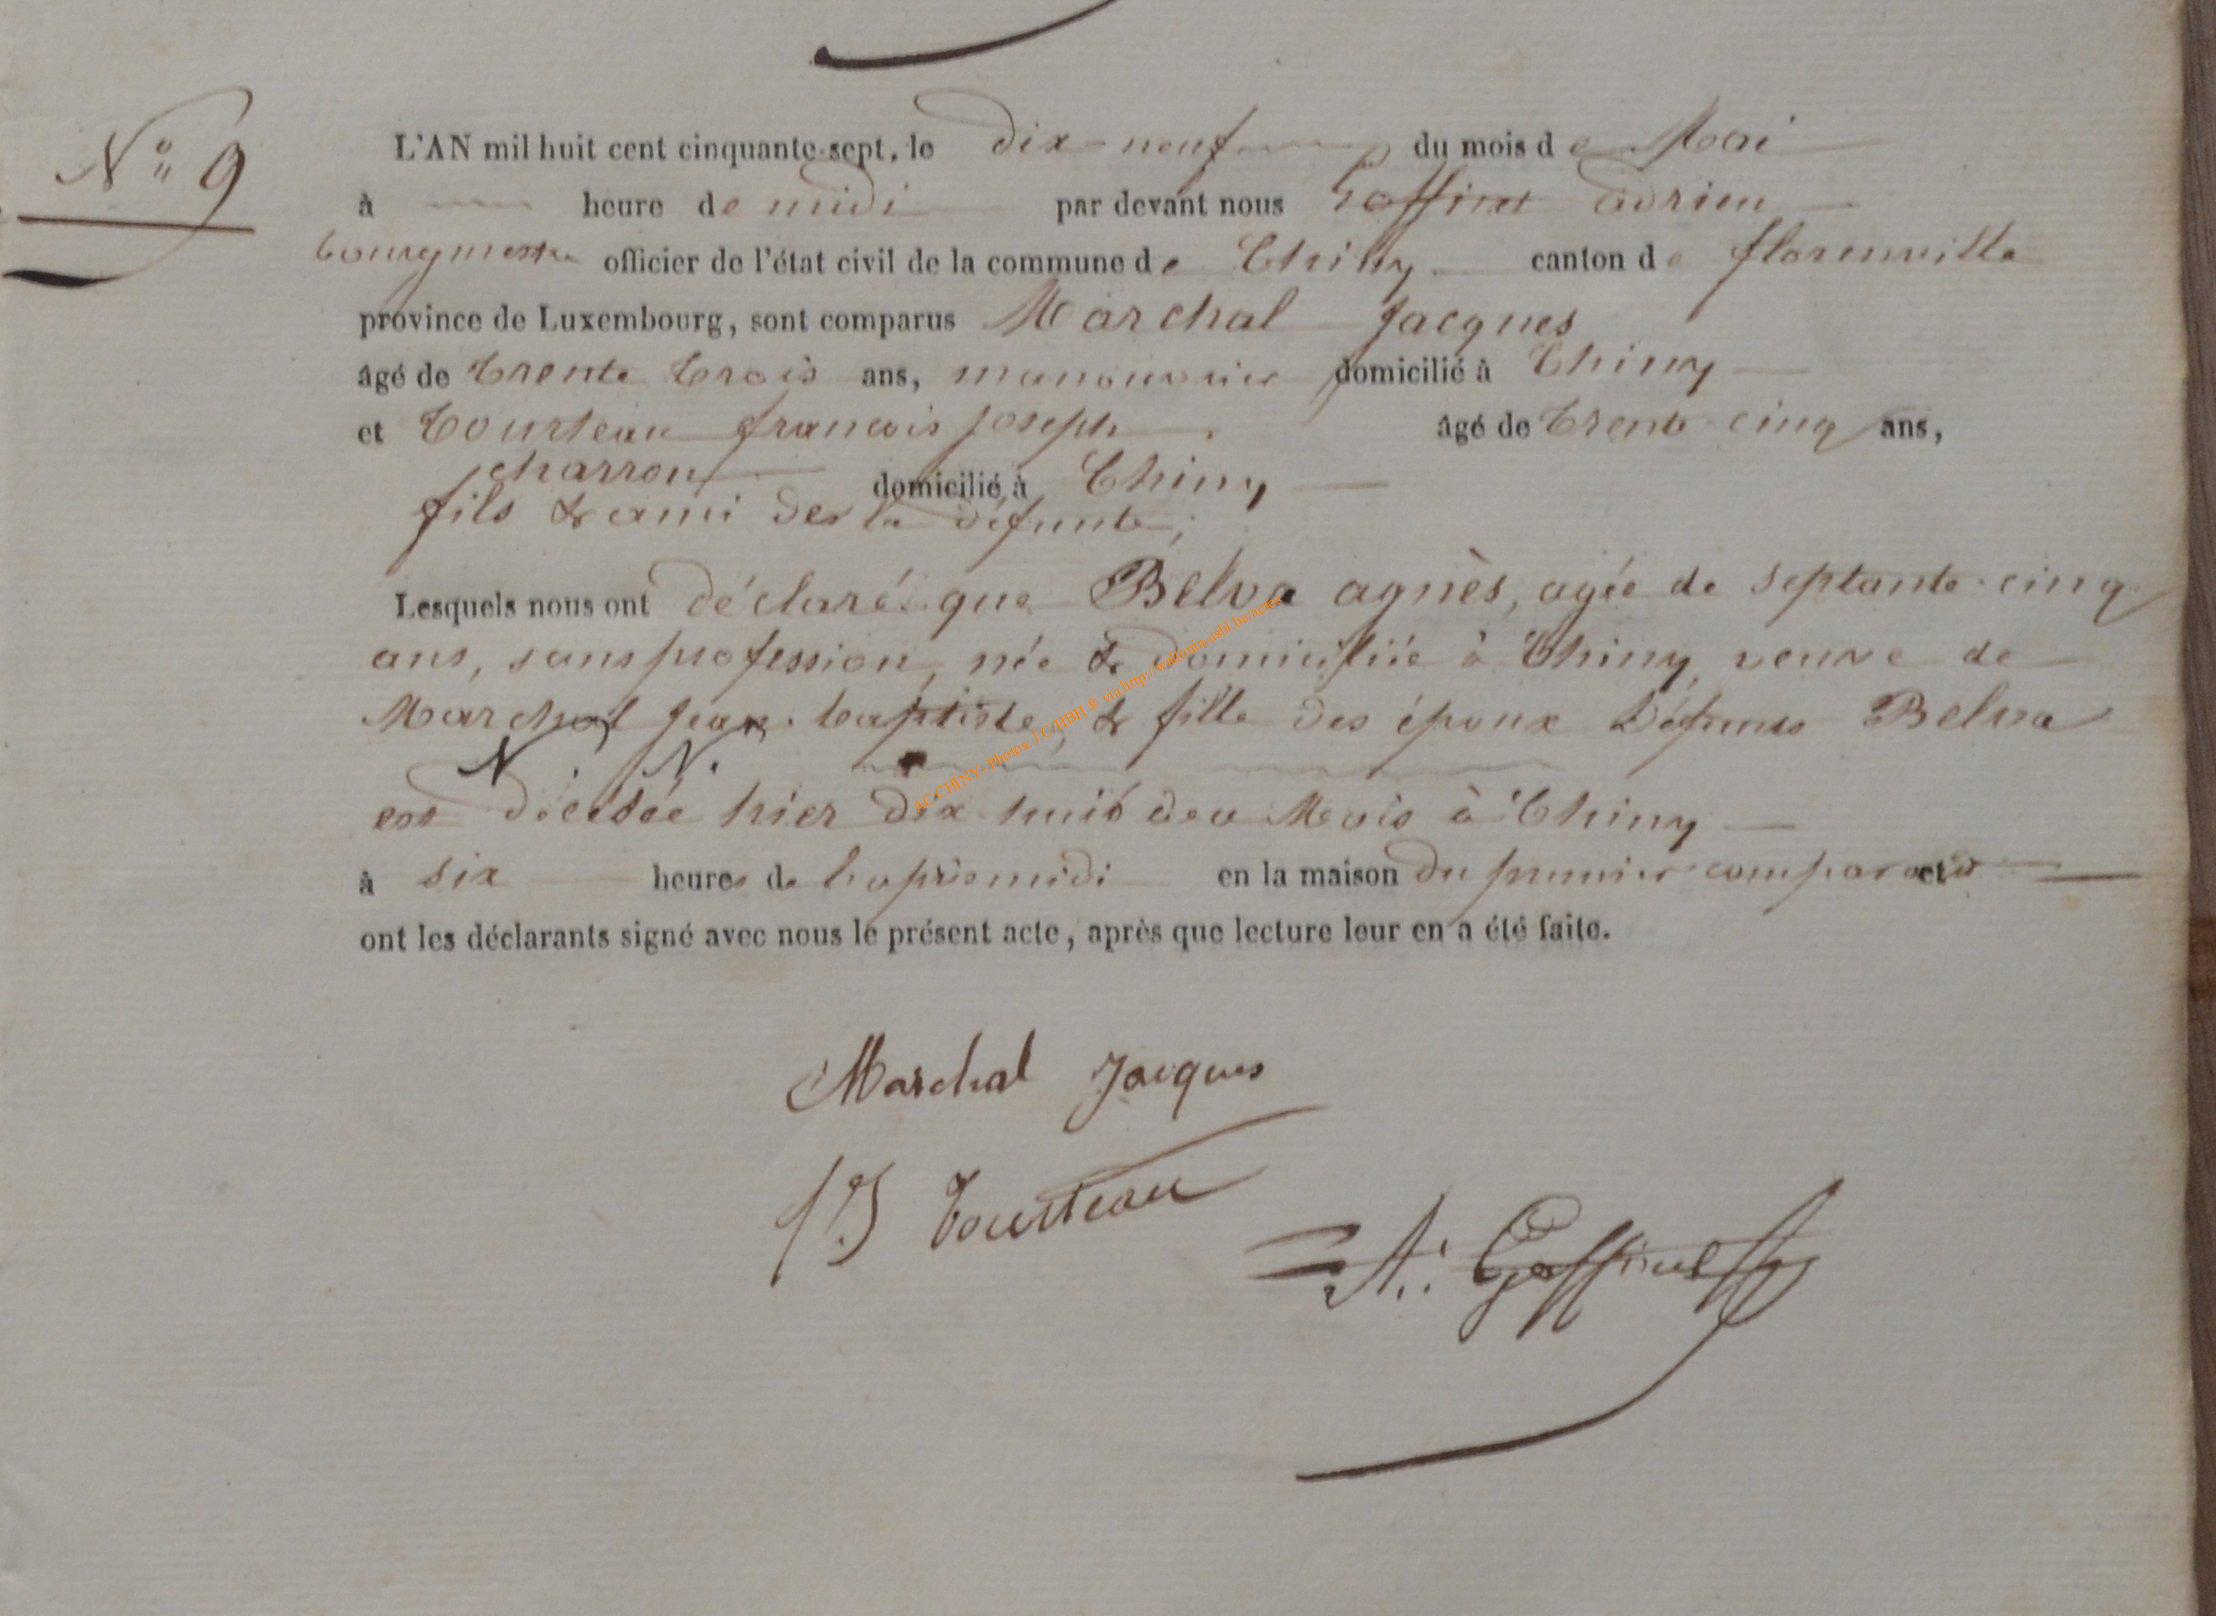 N° 9
L'AN mil huit cent cinquante-sept, le dix-neuf du mois de Mai
à heure de midi par devant nous Goffinet adrien
bourgmestre officier de l'état civil de la commune de Chiny canton de florenville
province de Luxembourg, sont comparus Marchal Jacques
âgé de trente trois ans, manouvrier domicilié à Chiny
et Tourteau francois joseph âgé de trente cinq ans,
charron domicilié à Chiny
fils & ami de la défunte,
Lesquels nous ont déclaré que Belva agnès, agée de septante-cinq
ans, sans profession, née & domiciliée à Chiny, veuve de
Marchal jean-baptiste, & fille des époux défunts Belva
N. N.
est décédée hier dix-huit du Mois à Chiny
à six heures de l'après midi en la maison du premier comparant et
ont les déclarants signé avec nous le présent acte, après que lecture leur en a été faite.
Marchal Jacques
f.J Tourteau
A. Goffinet
AC CHINY - Photos J.C./HBH © via http://wallonia-asbl.be/actes